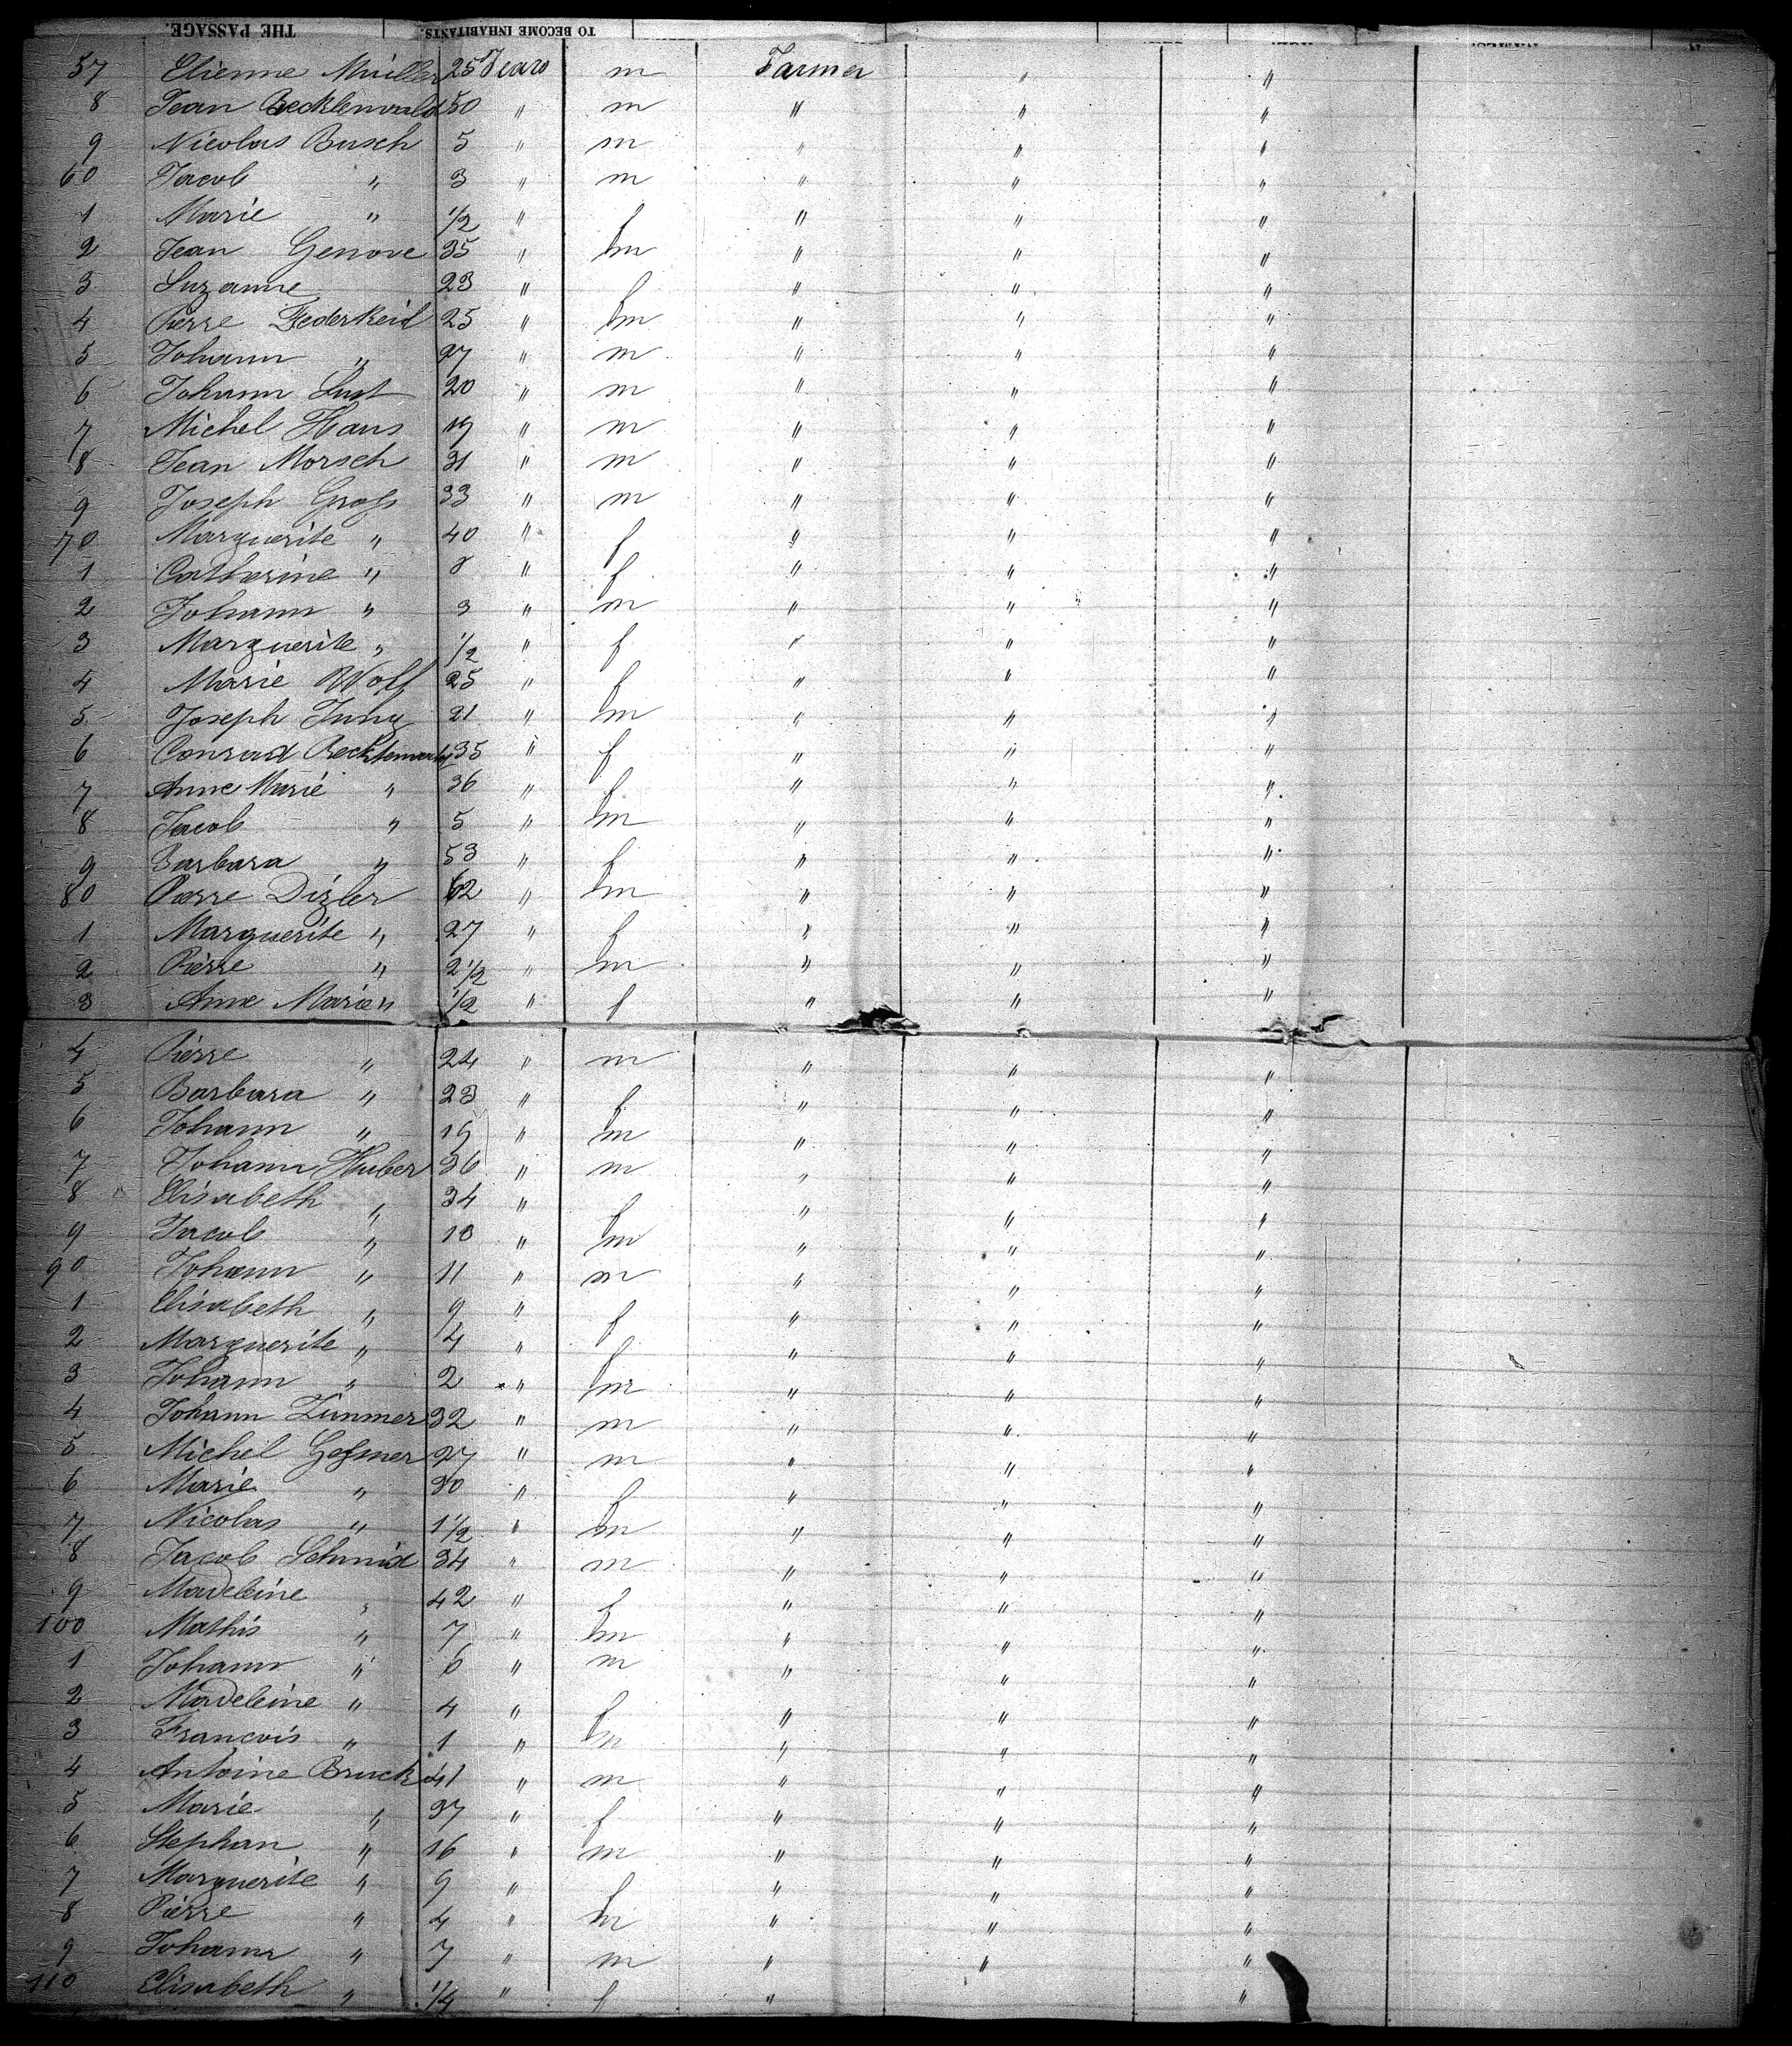 THE PASSAGE. TO BECOME INHABITANTS.
57 Etienne Müller 25 Years m Farmer " "
8 Jean Recklenwald 50 " m " " "
9 Nicolas Busch 5 " m " " "
60 Jacob " 3 " m " " "
1 Marie " 1/2 " f " " "
2 Jean Genove 35 " m " " "
3 Suzanne 23 " f " " "
4 Pierre Federkeid 25 " m " " "
5 Johann " 27 " m " " "
6 Johann Lust 20 " m " " "
7 Michel Hans 19 " m " " "
8 Jean Morsch 31 " m " " "
9 Joseph Groß 33 " m " " "
70 Marguerite " 40 " f " " "
1 Catherine " 8 " f " " "
2 Johann " 3 " m " " "
3 Marguerite " 1/2 " f " " "
4 Marie Wolf 25 " f " " "
5 Joseph Jung 21 " m " " "
6 Conrad 35 " f " " "
7 Anne Marie " 36 " f " " "
8 Jacob " 5 " m " " "
9 Barbara " 53 " f " " "
80 Pierre Dizler 62 " m " " "
1 Marguerite " 27 " f " " "
2 Pierre " 2 1/2 " m " " "
3 Anne Marie " 1/2 " f " " "
4 Pierre " 24 " m " " "
5 Barbara " 23 " f " " "
6 Johann " 19 " m " " "
7 Johann Huber 36 " m " " "
8 Elisabeth " 34 " f " " "
9 Jacob " 10 " m " " "
90 Johann " 11 " m " " "
1 Elisabeth " 9 " f " " "
2 Marguerite " 4 " f " " "
3 Johann " 2 " m " " "
4 Johann Zimmer 32 " m " " "
5 Michel Geßner 27 " m " " "
6 Marie " 30 " f " " "
7 Nicolas " 1 1/2 " m " " "
8 Jacob Schmid 34 " m " " "
9 Madeleine " 42 " f " " "
100 Mathis " 7 " m " " "
1 Johann " 6 " m " " "
2 Madeleine " 4 " f " " "
3 Francois " 1 " m " " "
4 Antoine Bruck 41 " m " " "
5 Marie " 37 " f " " "
6 Stephan " 16 " m " " "
7 Marguerite " 9 " f " " "
8 Pierre " 4 " m " " "
9 Johann " 7 " m " " "
110 Elisabeth " 1/4 " f " "